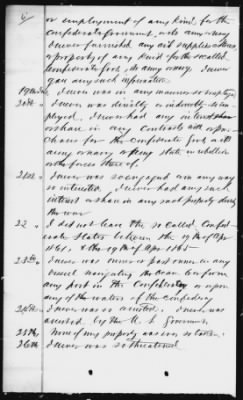 6
or employment of any kind for the
Confederate Government, nor its army navy
I never furnished any aid supplies stores
or property of any kind for the so called
Confederate Govt, its army or navy. I never
gave any such information
19th I never was in any manner so employed
20th " I never was directly or indirectly so em-
ployed. I never had any interest
or share in any Contracts or pur-
chase for the Confederate Govt, its
army or navy or the any state in rebellion
or the forces thereof.
21st " I never was so engaged in any way
or interested. I never had any such
interest or share in any such property during
the war
22 " I did not leave the so called Confed-
erate States between the 19th of Apr
1861. & the 19th of Apr 1865
23rd " I never was owner or part owner in any
vessel navigating the ocean to or from
any port in the Confederacy or upon
any of the waters of the confederacy
24th " I never was so arrested. I never was
arrested by the U. S. Government
25th " None of my property was ever so taken.
26th " I never was so threatened